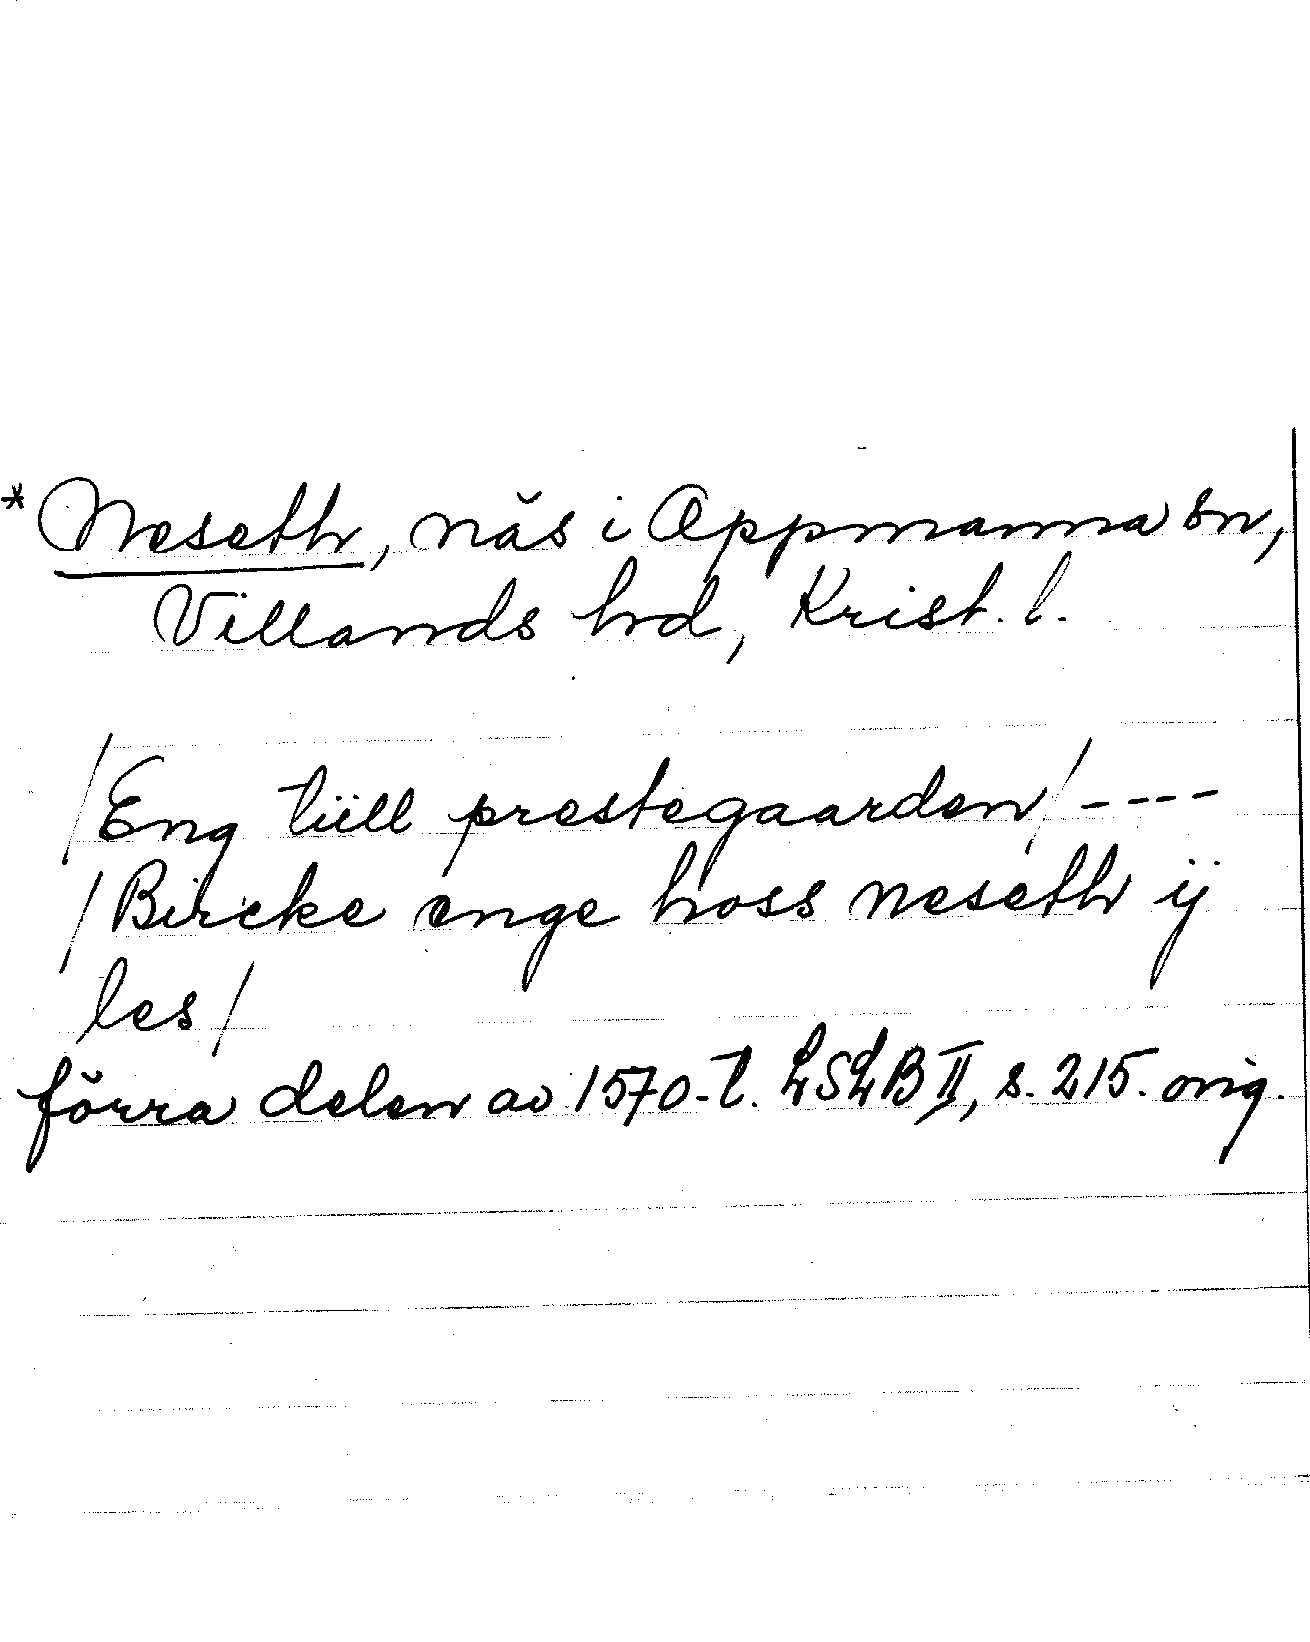 *Neseth, näs i Oppmanna sn,
Villands hd, Krist. l.
/Eng tiill prestegaarden/ ----
/Bircke enge hoss neseth ij
les/
förra delen av 1570-t. LSLB II, s. 215. orig.